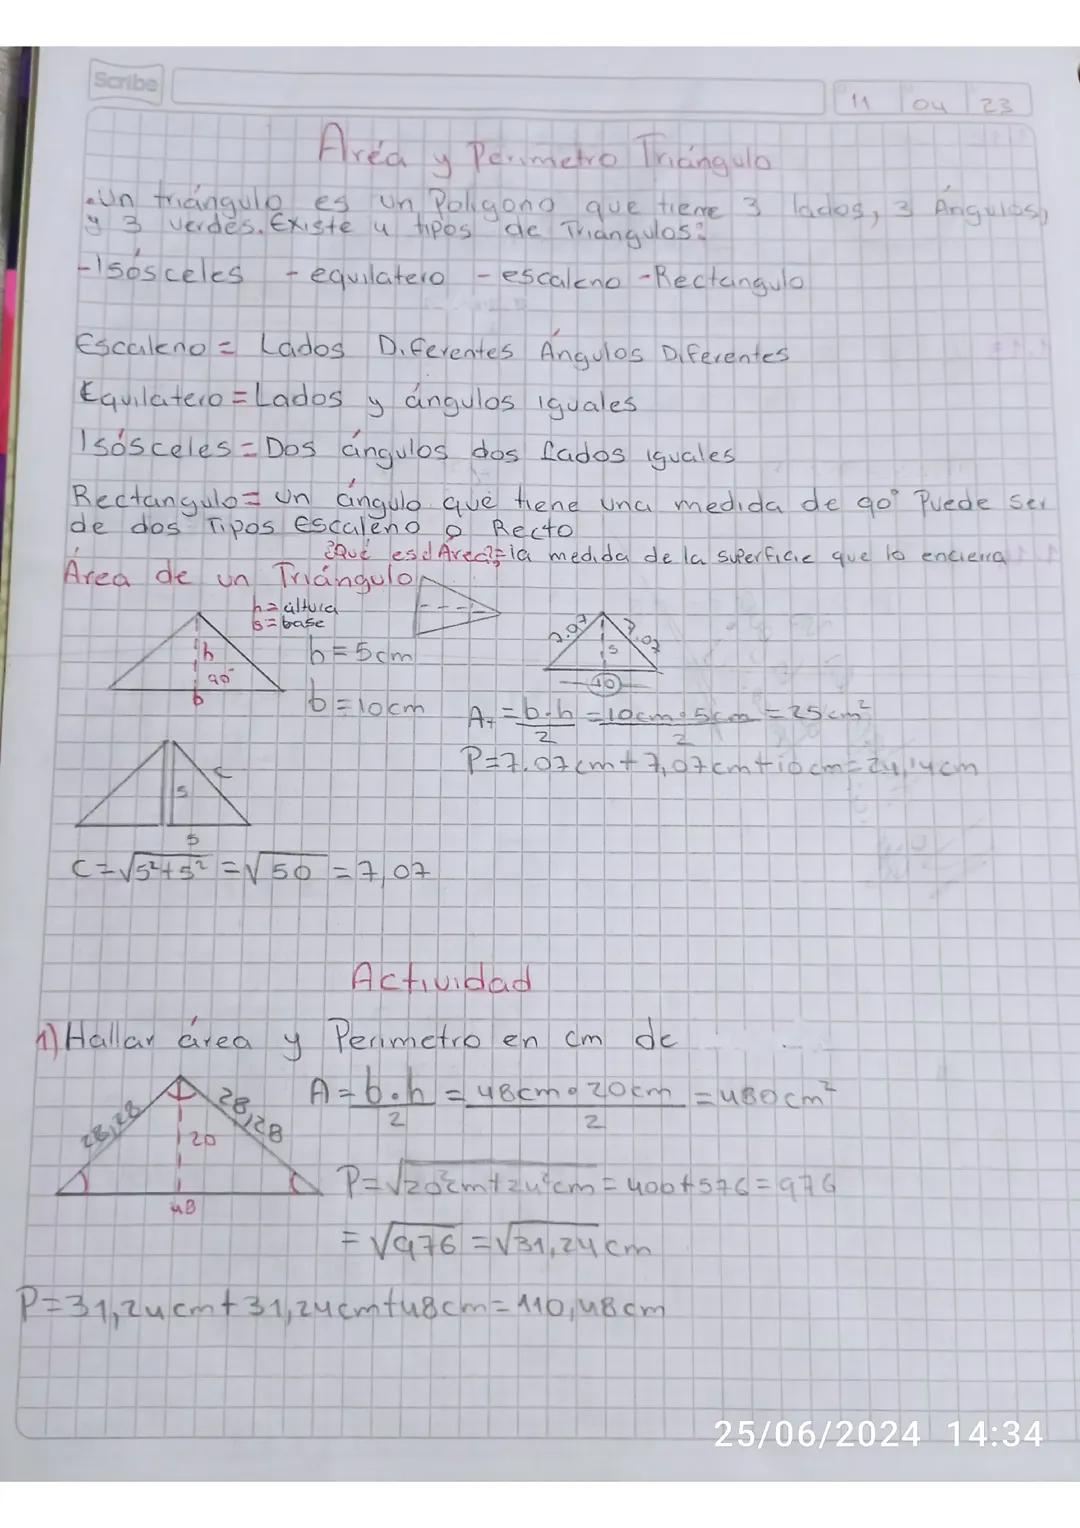 Scribe
11 04 23
Aréa y Perimetro Triángulo
Un triángulo es un Poligono que tiene 3 lados, 3 Ángulos,
y 3 verdés. Existe 4 tipos de Triangulos:
-Isósceles -equilatero -escaleno -Rectangulo
Escaleno = Lados Diferentes Ángulos Diferentes
Equilatero = Lados y ángulos iguales
Isósceles = Dos ángulos dos lados iguales
Rectangulo = un ángulo que tiene una medida de 90° Puede ser
de dos Tipos Escaleno o Recto
¿Qué es el Área? = la medida de la superficie que lo encierra
Área de un Triángulo
h = altura
b = base
h
90°
b
b = 5cm
b = 10cm
7.07
7.07
5
10
A_T = b·h/2 = 10cm·5cm/2 = 25cm²
P=7.07cm+7,07cm+10cm=24,14cm
c
5
5
C=√5²+5² =√50 =7,07
Actividad
1) Hallar área y Perimetro en cm de
28,28
28,28
20
48
A= b·h/2 = 48cm·20cm/2 =480cm²
P=√20²cm+24²cm=400+576=976
=√976=√31,24cm
P=31,24cm+31,24cm+48cm=110,48cm
25/06/2024 14:34